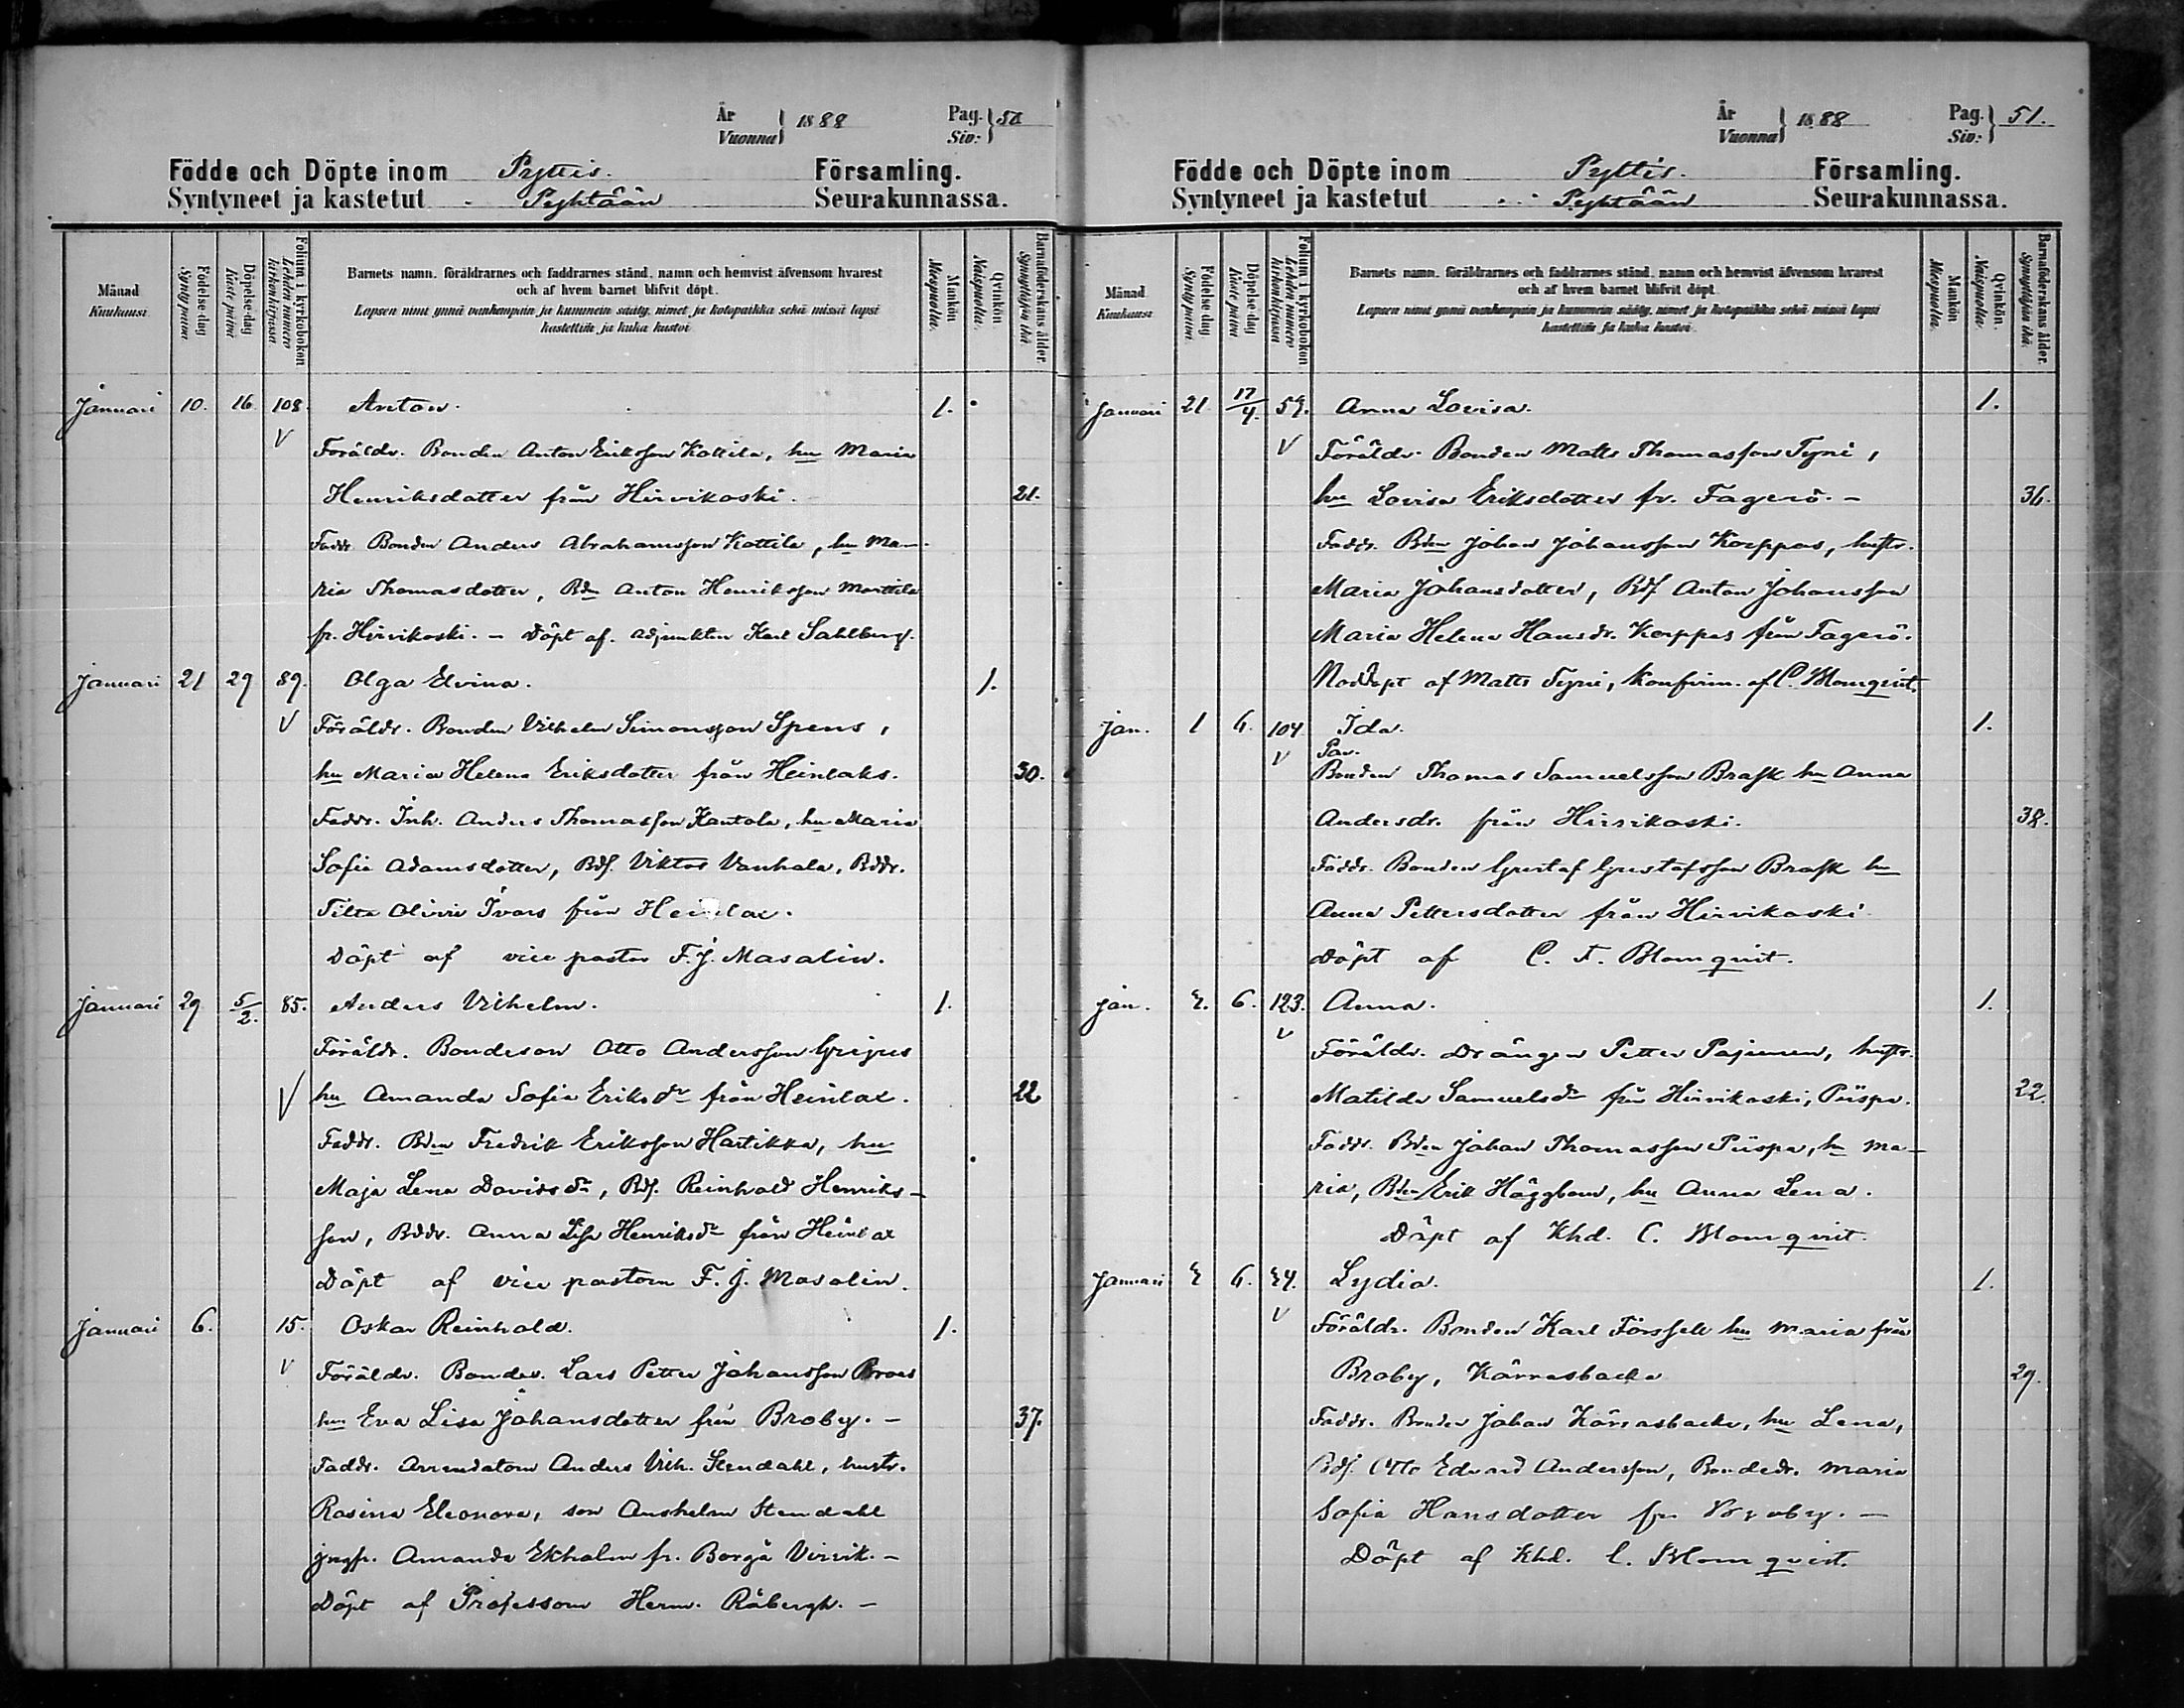 År
Vuonna
1888
Pag.
Siv:
50
Födde och Döpte inom Pyttis. Församling.
Syntyneet ja kastetut Pyhtään Seurakunnassa.
Månad
Kuukausi.
Födelse-dag
Synty päivä
Döpelse-dag
Kaste päivä
Folium i kyrkoboken
Lehden numero kirkonkirjassa
Barnets namn, föräldrarnes och faddrarnes stånd, namn och hemvist äfvensom hvarest
och af hvem barnet blifvit döpt.
Lapsen nimi ynnä vanhempain ja kummein sääty, nimet ja kotopaikka sekä missä lapsi
kastettiin ja kuka kastoi
Mankön
Miespuolia.
Qvinkön
Naispuolia.
Barnaföderskans ålder.
Synnyttäjän ikä.
Januari 10. 16. 108. Anton. 1.
V Föräldr. Bonden Anton Eriksson Kottila, hu Maria
Henriksdotter från Hirvikoski. 21.
Faddr. Bonden Anders Abrahamsson Kottila, hu Ma-
ria Thomasdotter, Bdn Anton Henriksson Marttila
fr. Hirvikoski. – Döpt af. adjunkten Karl Sahlberg.
Januari 21 29 89. Olga Elvina. 1.
V Föräldr. Bonden Vilhelm Simonsson Spens,
hu Maria Helena Eriksdotter från Heinlaks. 30.
Faddr. Inh. Anders Thomasson Kantola, hu Maria
Sofia Adamsdotter, Bdf. Viktor Vanhala, Bddr.
Tilta Olivia Ivars från Heinlax.
Döpt af vice pastor F. J. Masalin.
Januari 29 5/2. 85. Anders Vilhelm. 1.
Föräldr. Bondeson Otto Andersson Grijus
V hu Amanda Sofia Eriksdr från Heinlax. 22
Faddr. Bden Fredrik Eriksson Hartikka, hu
Maja Lena Davidsdr, Bdf. Reinhold Henriks-
son, Bddr. Anna Lisa Henriksdr från Heinlax
Döpt af vice pastorn F. J. Masalin.
Januari 6. 15. Oskar Reinhold. 1.
V Föräldr. Bonden. Lars Petter Johansson Broas
hu Eva Lisa Johansdotter från Broby. – 37.
Faddr. Arrendatorn Anders Vilh. Stendahl, hustr.
Rosina Eleonora, son Anshelm Stendahl
jngfr. Amanda Ekholm fr. Borgå Virvik. –
Döpt af Professorn Herm. Råbergh. –
År
Vuonna
1888
Pag.
Siv:
51.
Födde och Döpte inom Pyttis. Församling.
Syntyneet ja kastetut Pyhtään Seurakunnassa.
Månad
Kuukausi
Födelse-dag
Synty päivä
Döpelse-dag
Kaste päivä
Folium i kyrkoboken
Lehden numero kirkonkirjassa
Barnets namn, föräldrarnes och faddrarnes stånd, namn och hemvist äfvensom hvarest
och af hvem barnet blifvit döpt.
Lapsen nimi ynnä vanhempain ja kummein sääty, nimet ja kotopaikka sekä missä lapsi
kastettiin ja kuka kastoi.
Mankön
Miespuolia.
Qvinkön.
Naispuolia.
Barnaföderskans ålder.
Synnyttäjän ikä.
Januari 21 17/4. 59. Anna Lovisa. 1.
V Föräldr. Bonden Matts Thomasson Tyni,
hu Lovisa Eriksdotter fr. Fagerö. – 36.
Faddr. Bden Johan Johansson Korppas, hustr.
Maria Johansdotter, Bdf Anton Johansson
Maria Helena Hansdr. Korppas från Fagerö.
Nöddöpt af Matts Tyni, konfirm. af C. Blomqvist.
Jan. 1 6. 104 Ida. 1.
V Par.
Bonden Thomas Samuelsson Brask hu Anna
Andersdr. från Hirvikoski. 38.
Faddr. Bonden Gustaf Gustafsson Brask hu
Anna Pettersdotter från Hirvikoski.
Döpt af C. F. Blomqvist.
Jan. 2. 6. 123. Anna. 1.
V Föräldr. Drängen Petter Pajunen, hustr.
Matilda Samuelsdr från Hirvikoski, Piispa. 22.
Faddr. Bden Johan Thomasson Piispa, hu Ma-
ria, Bden Erik Häggbom, hu Anna Lena.
Döpt af Khd. C. Blomqvist.
Januari 2 6. 24. Lydia. 1.
V Föräldr. Bonden Karl Forssell hu Maria från
Broby, Kärrasbacka 29.
Faddr. Bonden Johan Kärrasbacka, hu Lena,
Bdf. Otto Edvard Andersson, Bondedr. Maria
Sofia Hansdotter fr. Broby. –
Döpt af Khd. C. Blomqvist.